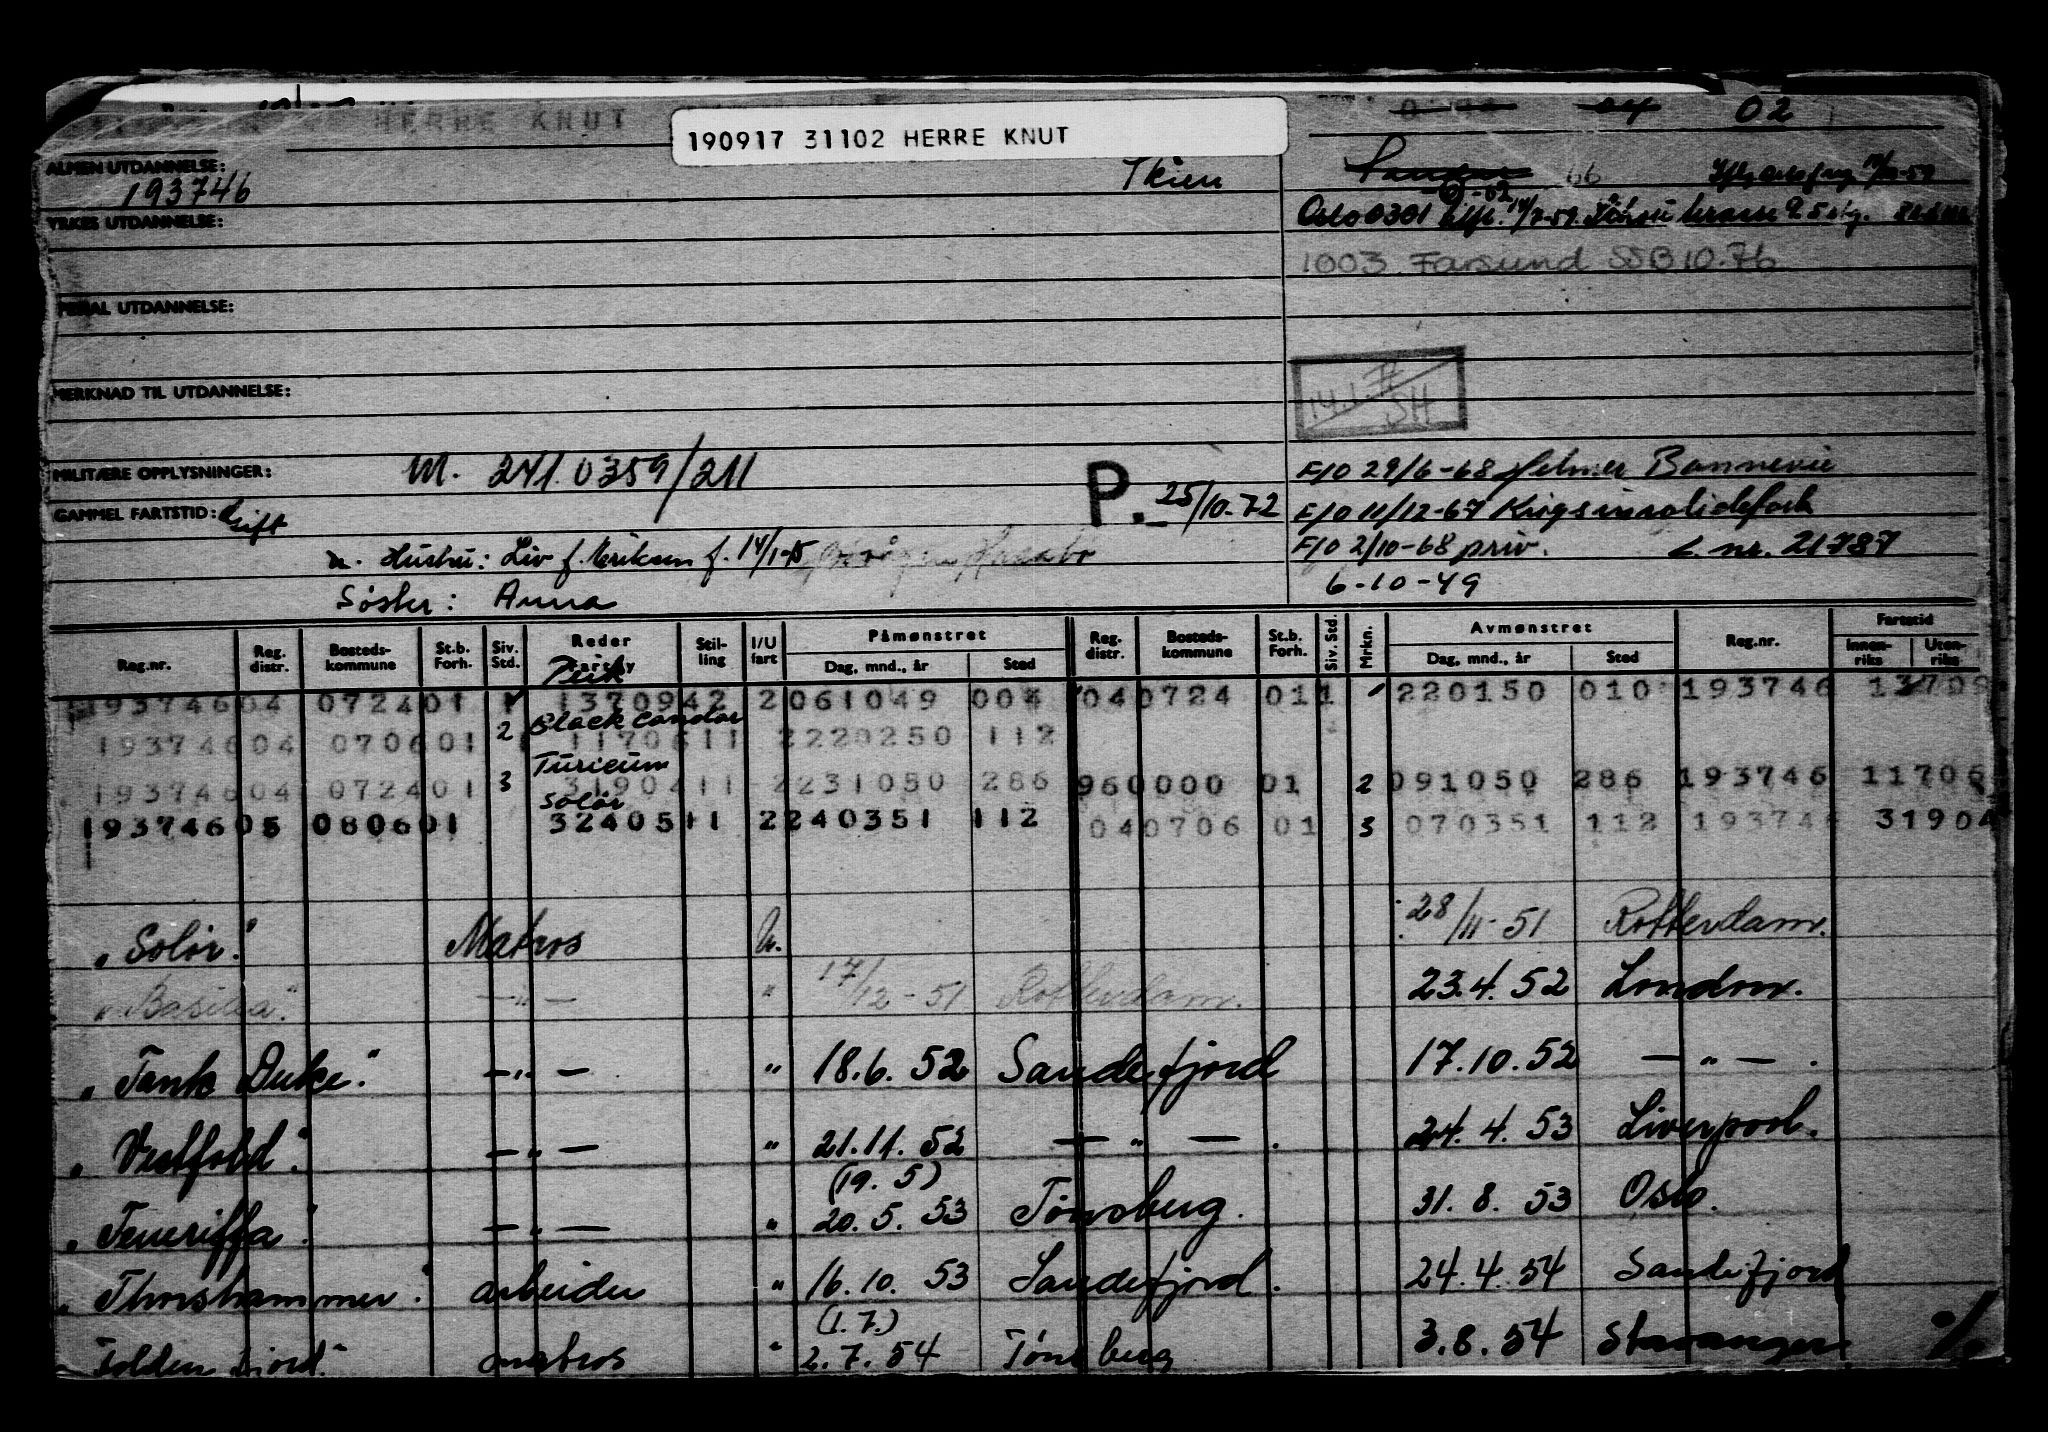 HERRE KNUT
190917 31102 HERRE KNUT
02
ALMEN UTDANNELSE:
193746
Skien
66
YRKES UTDANNELSE:
Oslo 0301
1003 Farsund SSB 10.76
SPESIAL UTDANNELSE:
MERKNAD TIL UTDANNELSE:
14.1.
SH
MILITÆRE OPPLYSNINGER:
M. 241.0359/211
P. 25/10-72
F/O 29/6-68 Helmer Bonnevie
GAMMEL FARTSTID:
Gift
F/O 11/12-67 Krigsinvalideforb
n. Hustru: Liv f. Eriksen f. 14/1-15
F/O 2/10-68 priv. L. nr. 21787
Søster: Anna
6-10-49
Reg.nr. Reg. distr. Bosteds-kommune St.b. Forh. Siv. Std. Reder Farsky Stil-ling I/U fart Påmønstret Dag, mnd., år Sted Reg. distr. Bosteds-kommune St.b. Forh. Siv. Std. Mrkn. Avmønstret Dag, mnd., år Sted Reg.nr. Fartstid Innen-riks Uten-riks
193746 04 0724 01 1 1370942 2 061049 004 04 0724 01 1 220150 010 193746 13709
2 Black Condor
193746 04 0706 01 1170611 2 220250 112
Turicum
193746 04 0724 01 3 3190411 2 231050 286 96 0000 01 2 091050 286 193746 11706
Solør
193746 05 0806 01 3240511 2 240351 112 04 0706 01 3 070351 112 193746 31904
"Solør." Matros U. 28/11-51 Rotterdam.
"Basilea." —"— " 17/12-51 Rotterdam. 23.4.52 London.
"Tank Duke." —"— " 18.6.52 Sandefjord 17.10.52 —"—.
"Vestfold." —"— " 21.11.52 —"—. 24.4.53 Liverpool.
(19.5)
"Teneriffa." —"— " 20.5.53 Tønsberg. 31.8.53 Oslo.
"Thorshammer." arbeider " 16.10.53 Sandefjord. 24.4.54 Sandefjord
(1.7.)
matros " 2.7.54 Tønsberg 3.8.54 Stavanger
%